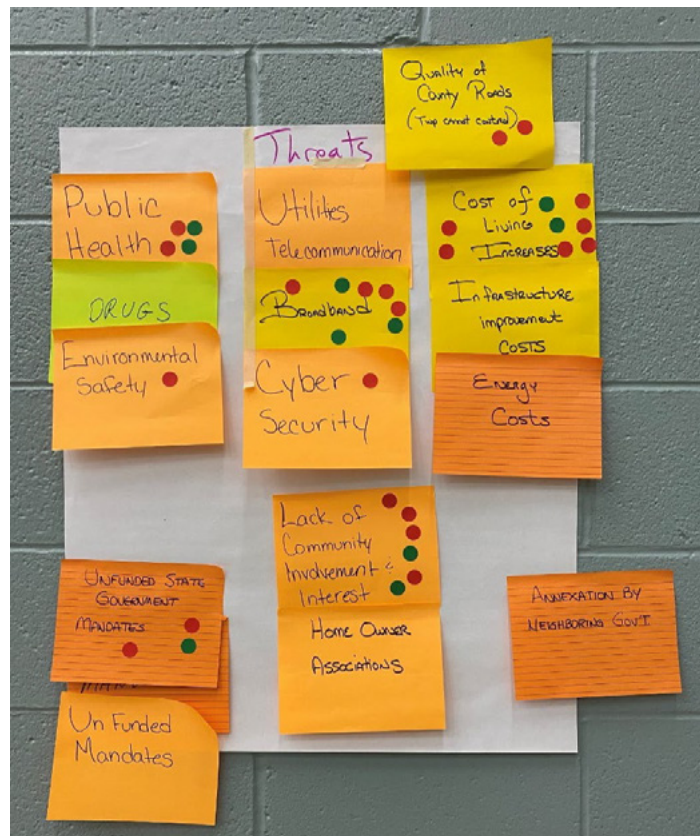 Quality of
County Roads
(Twp cannot control)
Threats
Public
Health
DRUGS
Environmental
Safety
Utilities
Telecommunication
Broadband
Cyber
Security
Cost of
Living
Increases
Infrastructure
improvement
costs
Energy
Costs
Lack of
Community
Involvement &
Interest
Home Owner
Associations
Unfunded State
Government
Mandates
Un Funded
Mandates
Annexation By
Neighboring Gov't